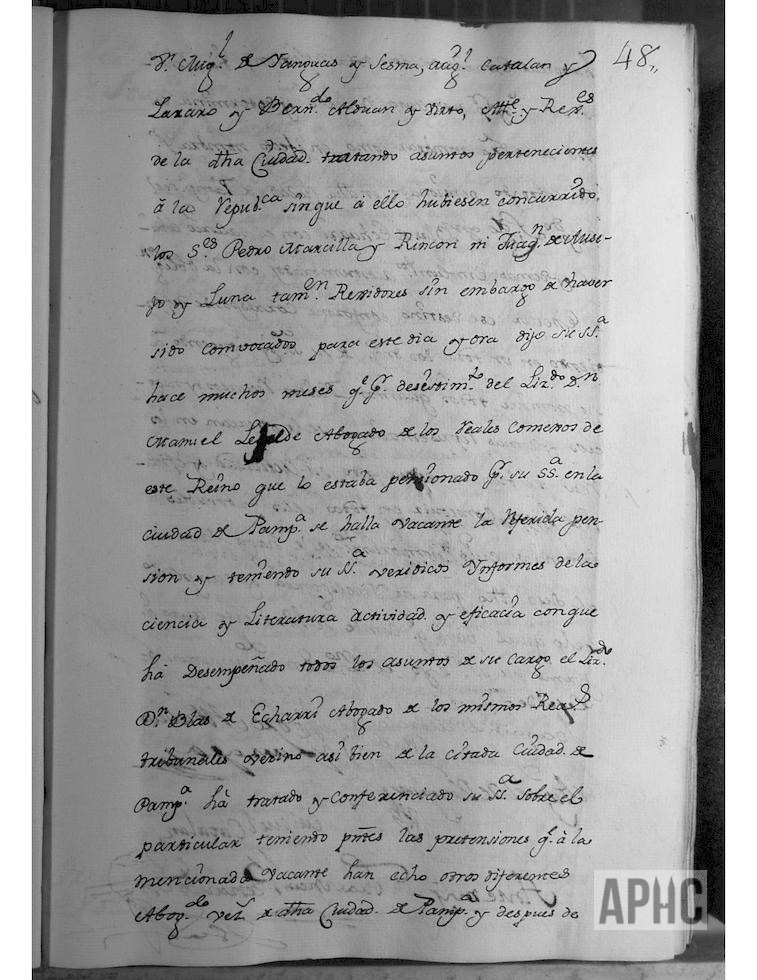 48,,
Dn. Mig.l de Yanguas y Sesma, Aug.n Catalan y
Lazaro y Bern.do Alduan y Virto, Alc.e y Rex.es
de la dha Ciudad. tratando asuntos pertenecientes
â la Repub.ca sin que a ello hubiesen concurrido,
los S.es Pedro Marcilla y Rincon ni Juaq.n de Ause-
jo y Luna tam.en Rexidores sin embargo de haver
sido convocados para este dia y ora dijo su SS.a
hace muchos meses q.e P.r desestim.to del Liz.do D.n
Manuel Le de Abogado de los Reales Comenos de
este Reino que lo estaba pensionado P.r su SS.a en la
ciudad de Pamp.a se halla vacante la referida pen-
sion y teniendo su SS.a veridicos Ynformes de la
ciencia y Literatura actividad. y eficacia con que
hà Desempeñado todos los asuntos de su cargo el Liz.do
D.n Blas de Echarri Abogado de los mismos Rea.s
tribunales vezino asi bien de la citada Ciudad. de
Pamp.a hà tratado y conferenciado su SS.a sobre el
particular teniendo pñtes las pretensiones q.e â la
mencionada Vacante han echo otros diferentes
Abog.dos vez.s de dha Ciudad. de Pamp.a y despues de
APHC